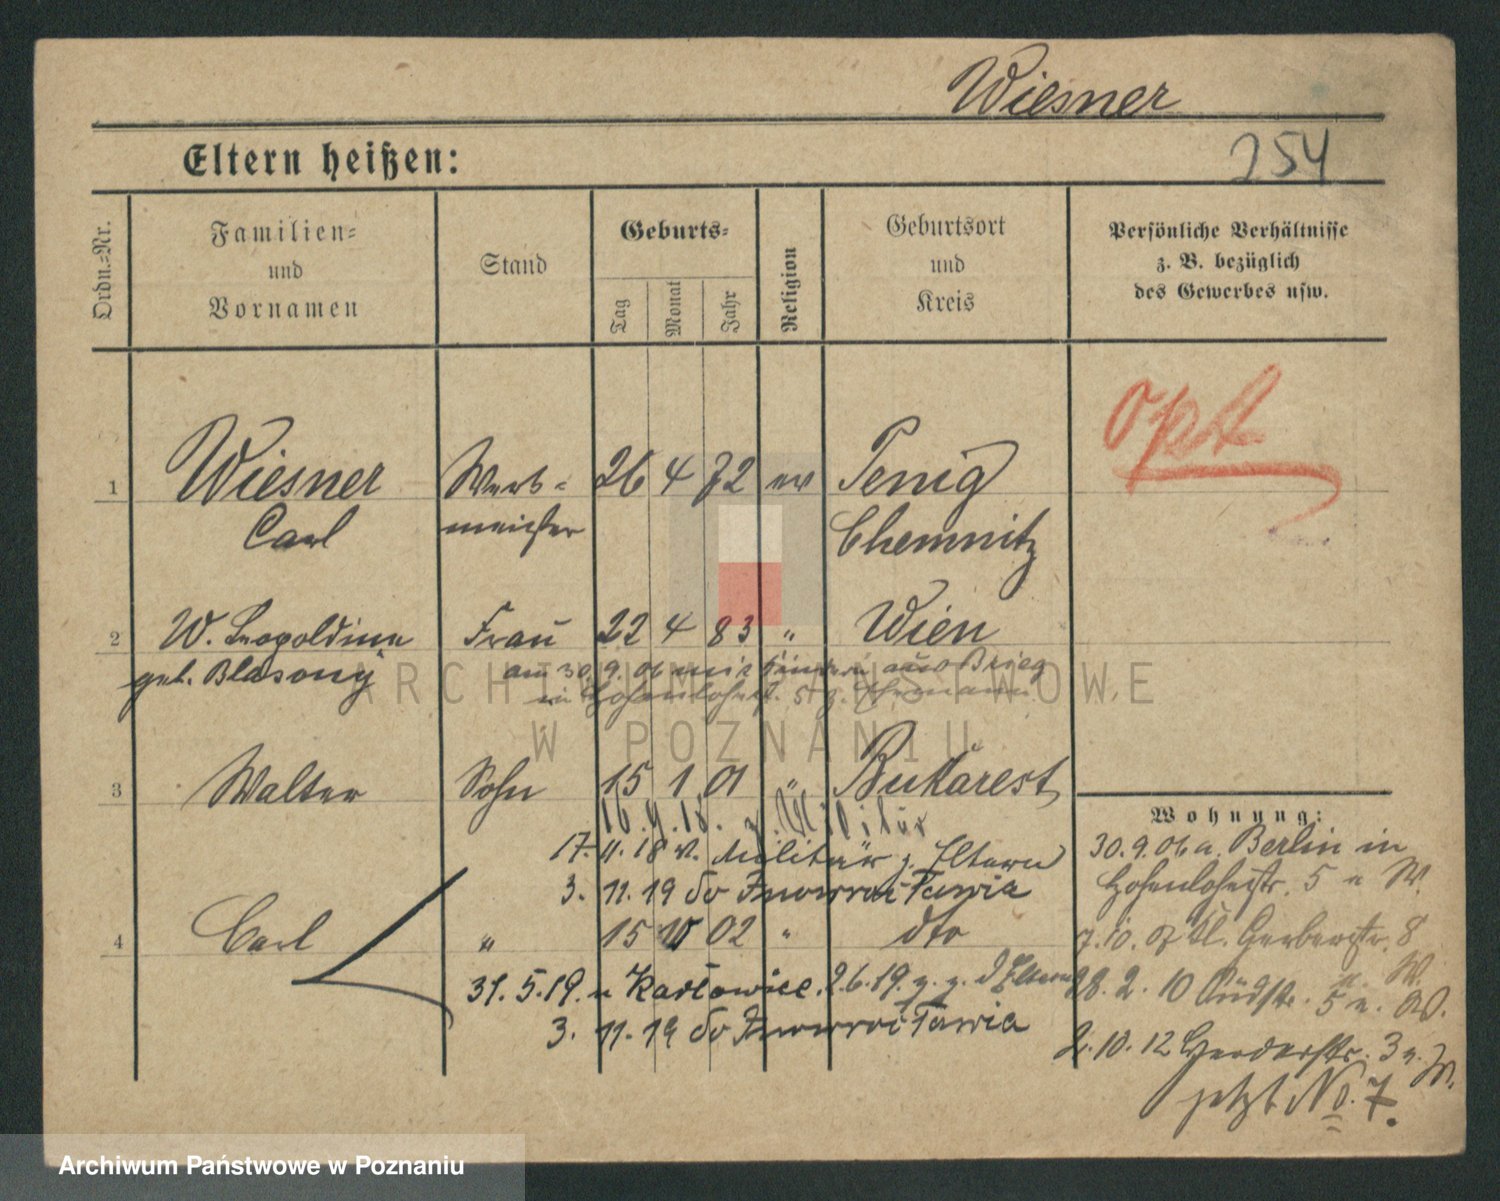 Wiesner
Eltern heißen:
254
Ordn.-Nr.
Familien-
und
Vornamen
Stand
Geburts-
Tag
Monat
Jahr
Religion
Geburtsort
und
Kreis
Persönliche Verhältnisse
z. B. bezüglich
des Gewerbes usw.
opt
1 Wiesner Werk- 26 4 72 ev Penig
Carl meister Chemnitz
2 W. Leopoldine Frau 22 4 83 " Wien
geb. Blasony am 30.9.06 mit Kindern aus Brieg
in Hohenlohestr. 5
3 Walter Sohn 15 1 01 " Bukarest
16.9.18. z. Militär
17.11.18 v. Militär z. Eltern
3. 11. 19 do Inowroctawia
4 Carl " 15 10 02 " dto
31.5.19. n Karlowice. 2.6.19. z. d Eltern
3. 11. 19 do Inowroctawia
Wohnung:
30.9.06 a. Berlin in
Hohenlohestr. 5 n W.
7.10.07 Kl. Gerberstr. 8
n. W.
28. 2. 10 Südstr. 5 n. W.
2.10.12 Herderstr. 3 n. W.
jetzt No. 7.
ARCHIWUM PAŃSTWOWE
W POZNANIU
Archiwum Państwowe w Poznaniu